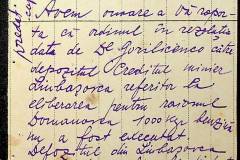 Avem onoare a Vă rapor-
ta că ordinul în rezoluția
data de Dl Gorilicenco către
depozitul Creditul minier
Liubașovca referitor la
eloberarea pentru raionul
Domanovca 1000 kgr benzină
nu a fost executat.
Depozitul din Liubașovca